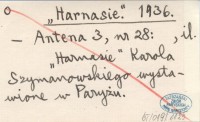 "Harnasie." 1936.
– Antena 3, nr 28: , il.
"Harnasie" Karola
Szymanowskiego wysta-
wione w Paryżu.